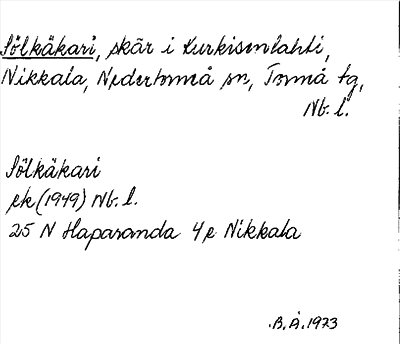 Sölkäkari, skär i Kurkisenlahti,
Nikkala, Nedertorneå sn, Torneå tg,
Nb. l.
Sölkäkari
ek (1949) Nb. l.
25 N Haparanda 4 e Nikkala
B.Å. 1973